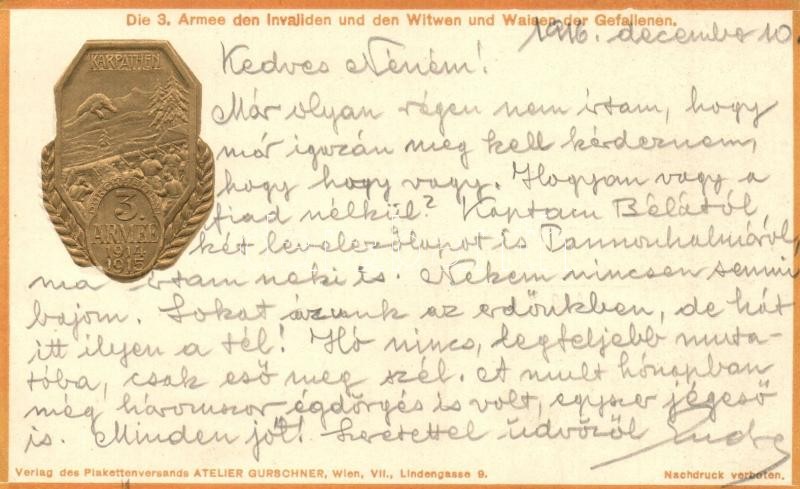 Die 3. Armee den Invaliden und den Witwen und Waisen der Gefallenen.
1916. december 10.
KARPATHEN
3.
ARMEE
1914
1915
Kedves Néném!
Már olyan régen nem írtam, hogy
már igazán meg kell kérdeznem,
hogy hogy vagy. Hogyan vagy a
fiad nélkül? Kaptam Bélától
két levelezőlapot is Pannonhalmáról,
ma írtam neki is. Nekem nincsen semmi
bajom. Sokat ázunk az erdőnkben, de hát
itt ilyen a tél! Hó nincs, legfeljebb muta-
tóba, csak eső meg szél. A mult hónapban
még háromszor égdörgés is volt, egyszer jégeső
is. Minden jót! Szeretettel üdvözöl Endre
Verlag des Plakettenversands ATELIER GURSCHNER, Wien, VII., Lindengasse 9.
Nachdruck verboten.